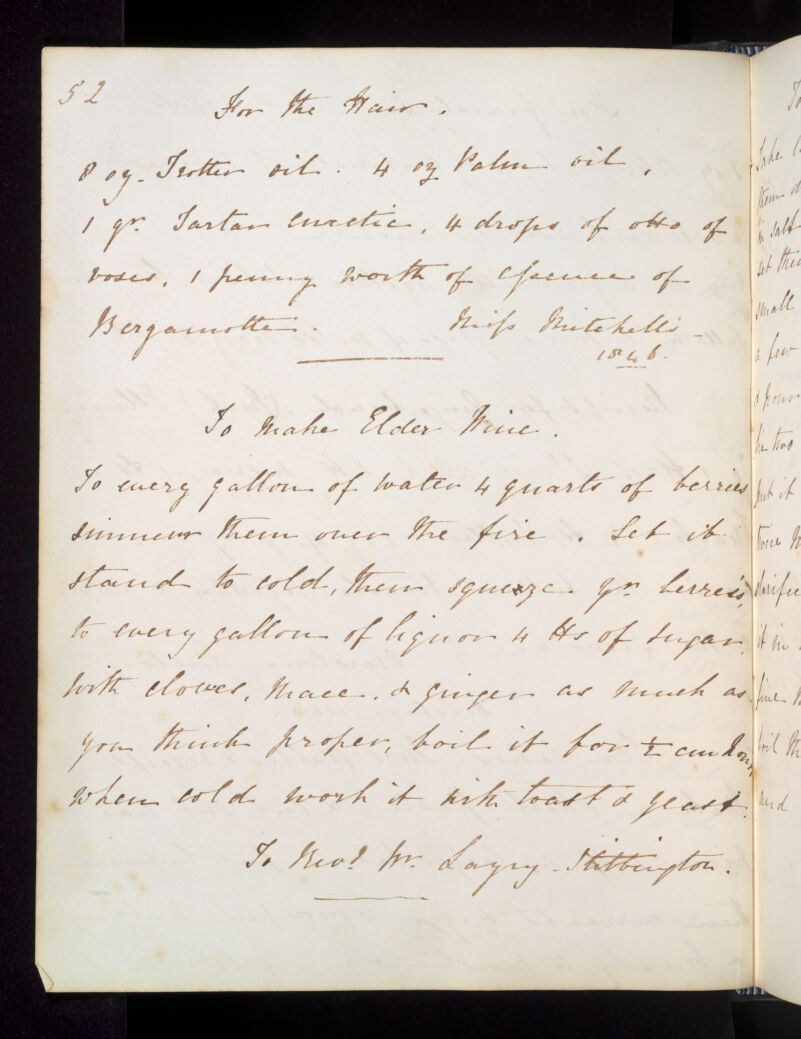 52
For the Hair.
8 oz. Trotter oil. 4 oz Palm oil,
1 gr. Tartar Emetic, 4 drops of otto of
roses, 1 penny worth of essence of
Bergamotte. Miss Mitchell's
1846.
To Make Elder Wine.
To every gallon of water 4 quarts of berries
simmer them over the fire. Let it
stand to cold, then squeeze yr berries,
to every gallon of liquor 4 lbs of sugar,
with cloves, mace, & ginger as much as
you think proper, boil it for ½ an hour,
when cold work it with toast & yeast.
Stibbington.
Take
them
salt
small
a few
two
put it
twice
it in
and